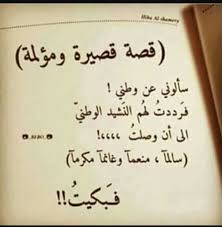 Hiba Al shamery
(قصة قصيرة ومؤلمة)
سألوني عن وطني !
فرددتُ لهُم النَشيد الوطنيّ
الى أن وصلتُ ،،،،!
(سالمآ ، منعمآ وغانمآ مكرمآ)
فَـبكيتُ!!